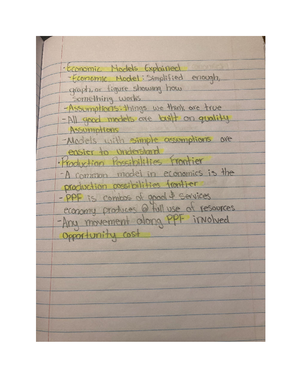 -Economic Models Explained
-Economic Model: Simplified enough
graph, or figure showing how
something works
-Assumptions: things we think are true
-All good models are built on quality
Assumptions
-Models with simple assumptions are
easier to understand
·Production Possibilities Frontier
-A common model in economics is the
production possibilities frontier
-PPF is combos of good & services
economy produces @ full use of resources
-Any movement along PPF involved
opportunity cost